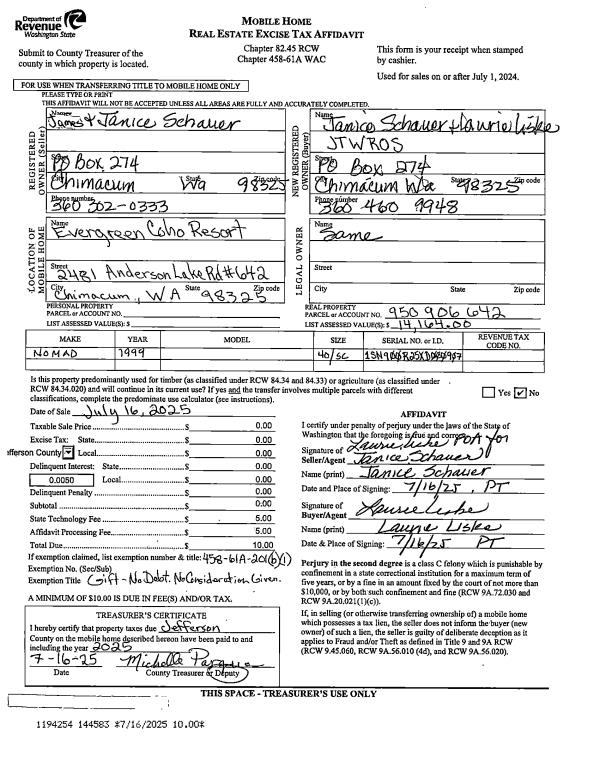 Department of
Revenue
Washington State
MOBILE HOME
REAL ESTATE EXCISE TAX AFFIDAVIT
Submit to County Treasurer of the
county in which property is located.
Chapter 82.45 RCW
Chapter 458-61A WAC
This form is your receipt when stamped
by cashier.
Used for sales on or after July 1, 2024.
FOR USE WHEN TRANSFERRING TITLE TO MOBILE HOME ONLY
PLEASE TYPE OR PRINT
THIS AFFIDAVIT WILL NOT BE ACCEPTED UNLESS ALL AREAS ARE FULLY AND ACCURATELY COMPLETED.
REGISTERED OWNER (Seller)
Name
James & Janice Schauer
PO Box 274
City State Zip code
Chimacum Wa 98325
Phone number
360 302-0333
NEW REGISTERED OWNER (Buyer)
Name
Janice Schauer & Laurie Liske
JTWROS
PO Box 274
City State Zip code
Chimacum Wa 98325
Phone number
360 460 9948
LOCATION OF MOBILE HOME
Name
Evergreen Coho Resort
Street
2481 Anderson Lake Rd #642
City State Zip code
Chimacum, WA 98325
LEGAL OWNER
Name
Same
Street
City State Zip code
PERSONAL PROPERTY
PARCEL or ACCOUNT NO.
LIST ASSESSED VALUE(S): $
REAL PROPERTY
PARCEL or ACCOUNT NO. 950 906 642
LIST ASSESSED VALUE(S): $ 14,164.00
MAKE YEAR MODEL SIZE SERIAL NO. or I.D. REVENUE TAX CODE NO.
NOMAD 1999 40/SC
Is this property predominantly used for timber (as classified under RCW 84.34 and 84.33) or agriculture (as classified under
RCW 84.34.020) and will continue in its current use? If yes and the transfer involves multiple parcels with different
classifications, complete the predominate use calculator (see instructions).
Yes No
Date of Sale July 16, 2025
Taxable Sale Price $ 0.00
Excise Tax: State $ 0.00
Jefferson County Local $ 0.00
Delinquent Interest: State $ 0.00
0.0050 Local $ 0.00
Delinquent Penalty $ 0.00
Subtotal $ 0.00
State Technology Fee $ 5.00
Affidavit Processing Fee $ 5.00
Total Due $ 10.00
If exemption claimed, list exemption number & title: 458-61A-201(b)(1)
Exemption No. (Sec/Sub)
Exemption Title Gift - No Debt. No Consideration Given.
A MINIMUM OF $10.00 IS DUE IN FEE(S) AND/OR TAX.
TREASURER'S CERTIFICATE
I hereby certify that property taxes due Jefferson
County on the mobile home described hereon have been paid to and
including the year 2025
7-16-25 Michelle
Date County Treasurer or Deputy
AFFIDAVIT
I certify under penalty of perjury under the laws of the State of
Washington that the foregoing is true and correct.
Signature of
Seller/Agent Laurie Liske POA for Janice Schauer
Name (print) Janice Schauer
Date and Place of Signing: 7/16/25, PT
Signature of
Buyer/Agent Laurie Liske
Name (print) Laurie Liske
Date & Place of Signing: 7/16/25 PT
Perjury in the second degree is a class C felony which is punishable by
confinement in a state correctional institution for a maximum term of
five years, or by a fine in an amount fixed by the court of not more than
$10,000, or by both such confinement and fine (RCW 9A.72.030 and
RCW 9A.20.021(1)(c)).
If, in selling (or otherwise transferring ownership of) a mobile home
which possesses a tax lien, the seller does not inform the buyer (new
owner) of such a lien, the seller is guilty of deliberate deception as it
applies to Fraud and/or Theft as defined in Title 9 and 9A RCW
(RCW 9.45.060, RCW 9A.56.010 (4d), and RCW 9A.56.020).
THIS SPACE - TREASURER'S USE ONLY
1194254 144583 *7/16/2025 10.00*